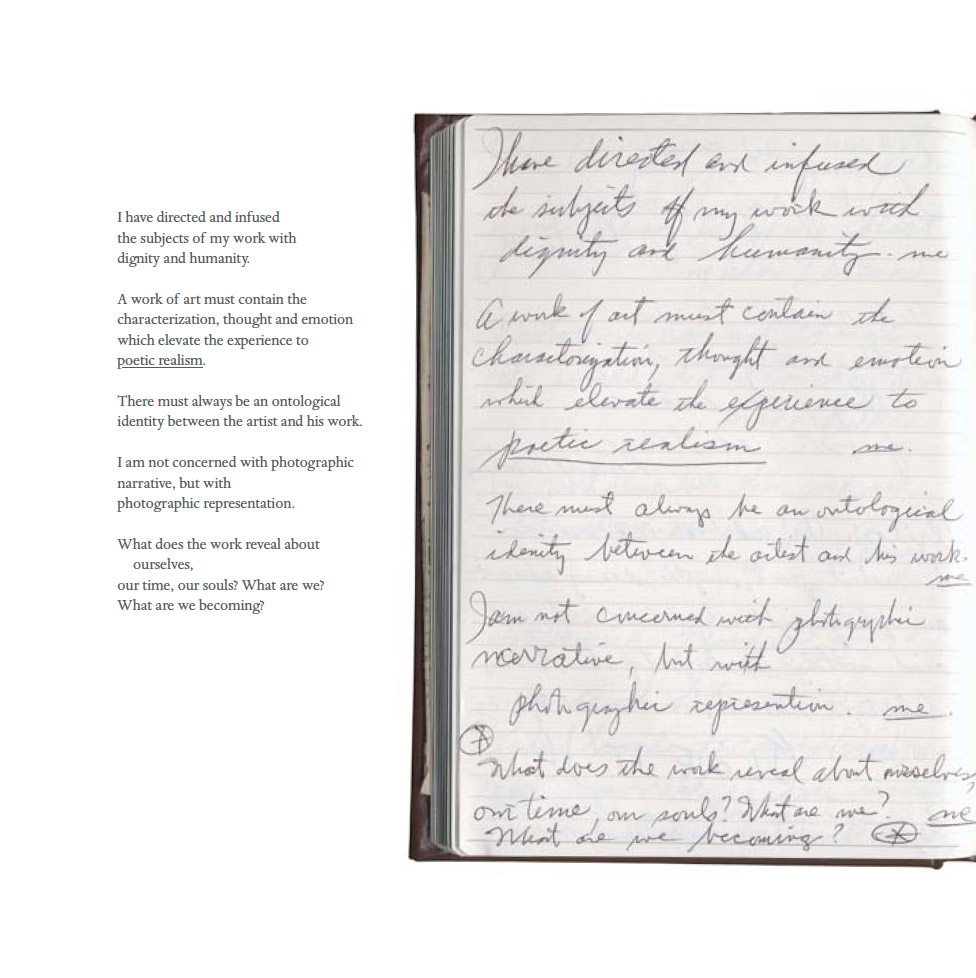 I have directed and infused
the subjects of my work with
dignity and humanity.
A work of art must contain the
characterization, thought and emotion
which elevate the experience to
poetic realism.
There must always be an ontological
identity between the artist and his work.
I am not concerned with photographic
narrative, but with
photographic representation.
What does the work reveal about
ourselves,
our time, our souls? What are we?
What are we becoming?
I have directed and infused
the subjects of my work with
dignity and humanity - me
A work of art must contain the
characterization, thought and emotion
which elevate the experience to
poetic realism me.
There must always be an ontological
idenity between the artist and his work.
me
I am not concerned with photographic
narrative, but with
photographic represention. me.
What does the work reveal about ourselves,
our time, our souls? What are we? me
What are we becoming?